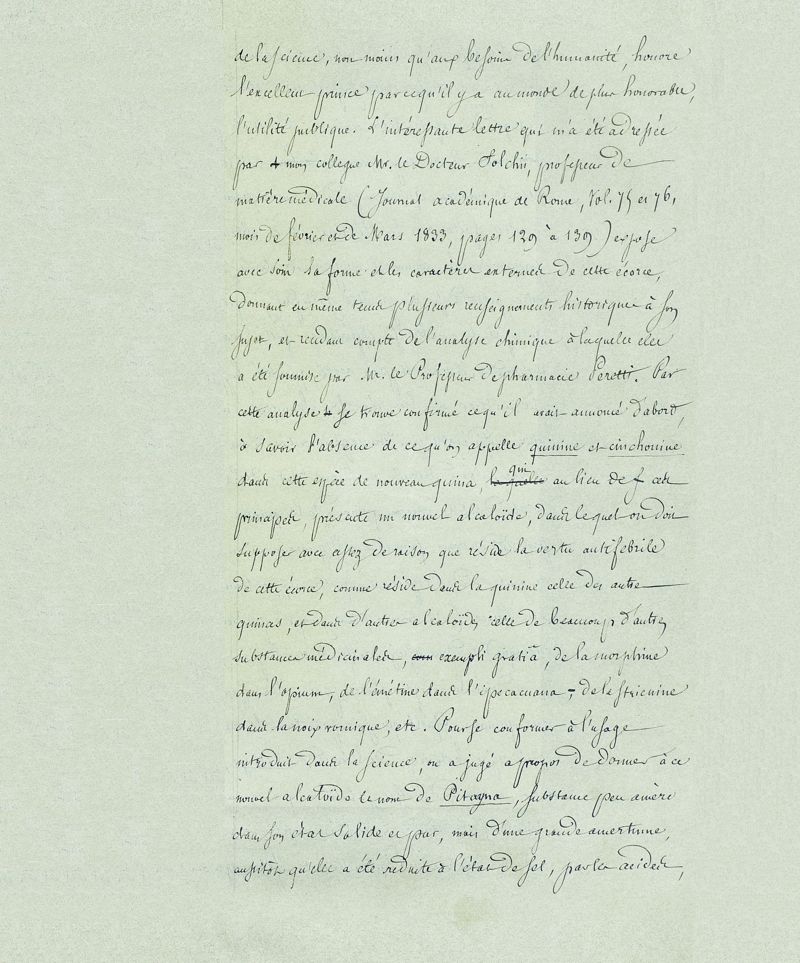 de la science, non moins qu'aux besoins de l'humanité, honore
l'excellent prince par ce qu'il y a au monde de plus honorable,
l'utilité publique. L'intéressante lettre qui m'a été adressée
par mon collegue Mr. le Docteur Folchi, professeur de
matière médicale (Journal académique de Rome, Vol. 75 et 76,
mois de février et de Mars 1833, pages 129 à 139) expose
avec soin la forme et les caractères externes de cette écorce,
donnant en même tems plusieurs renseignements historiques à son
sujet, et rendant compte de l'analyse chimique à laquelle elle
a été soumise par Mr. le Professeur de pharmacie Peretti. Par
cette analyse se trouve confirmé ce qu'il avait annoncé d'abord,
à savoir l'absence de ce qu'on appelle quinine et cinchonine
dans cette espèce de nouveau quina, la quelle qui au lieu de ces
principes, présente un nouvel alcaloïde, dans lequel on doit
supposer avec assez de raison que réside la vertu antifebrile
de cette écorce, comme réside dans la quinine celle des autres
quinas, et dans d'autres alcaloïdes celle de beaucoup d'autres
substances médicinales, exempli gratiâ, de la morphine
dans l'opium, de l'émétine dans l'ipecacuana, de la stricnine
dans la noix vomique, etc. Pour se conformer à l'usage
introduit dans la science, on a jugé apropos de donner à ce
nouvel alcaloïde le nom de Pitayna, substance peu amère
dans son état solide et pur, mais d'une grande amertume,
aussitôt qu'elle a été reduite à l'état de sel, par les acides,